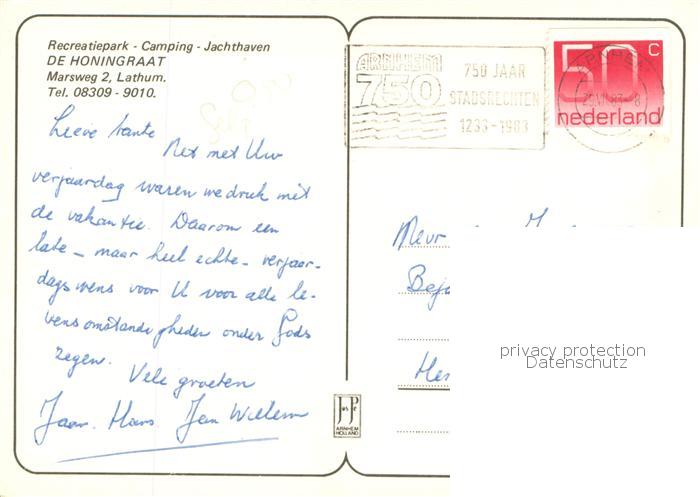 Recreatiepark - Camping - Jachthaven
DE HONINGRAAT
Marsweg 2, Lathum.
Tel. 08309 - 9010.
Lieve tante
Net met Uw
verjaardag waren we druk met
de vakantie. Daarom een
late - maar heel echte - verjaar-
dagswens voor U voor alle le-
vensomstandigheden onder Gods
zegen.
Vele groeten
Jaan. Hans Jan Willem
ARNHEM
750
750 JAAR
STADSRECHTEN
1233-1983
50 c
nederland
Mevr
Bej
JosPé
ARNHEM
HOLLAND
privacy protection
Datenschutz